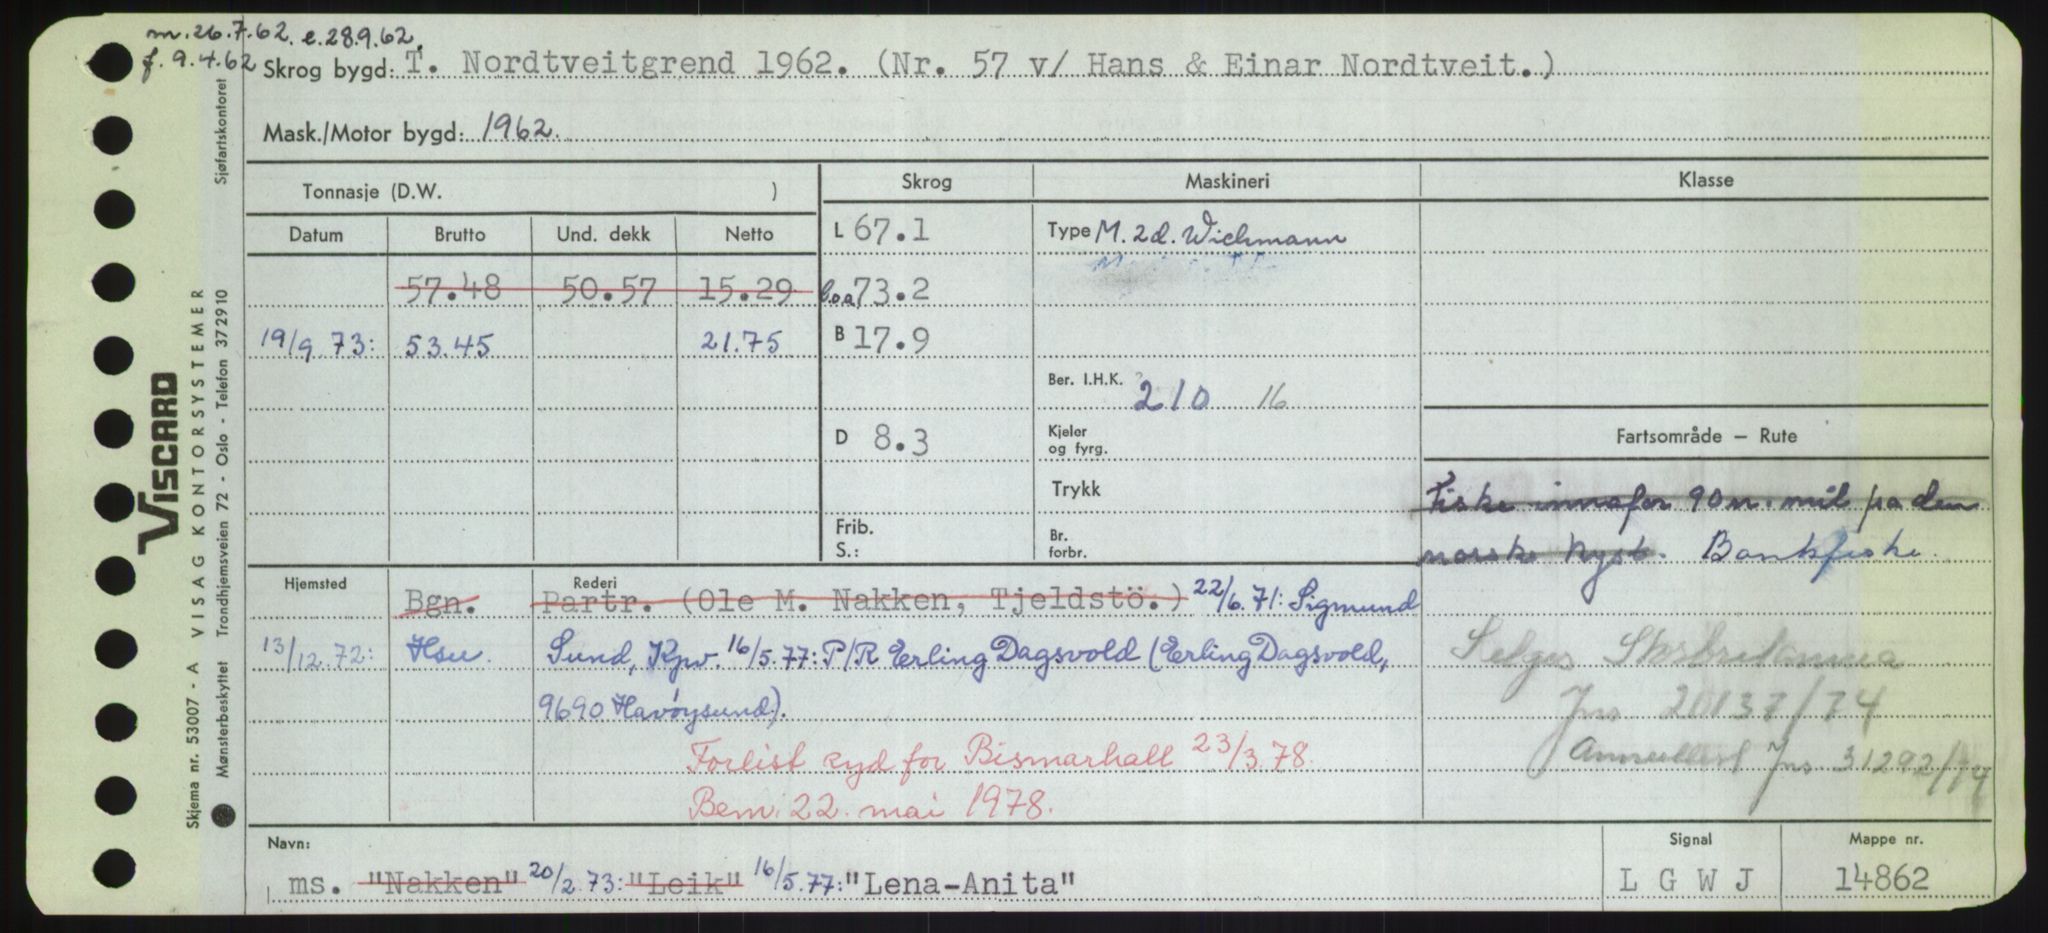 m. 26.7.62. e. 28.9.62.
f. 9.4.62
Skrog bygd: T. Nordtveitgrend 1962. (Nr. 57 v/ Hans & Einar Nordtveit.)
Mask./Motor bygd: 1962.
Tonnasje (D.W. )
Skrog Maskineri Klasse
Datum Brutto Und. dekk Netto
L 67.1 Type M. 2d. Wichmann
57.48 50.57 15.29 loa 73.2
19/9.73: 53.45 21.75 B 17.9
Ber. I.H.K. 210 16
D 8.3 Kjeler
og fyrg.
Fartsområde – Rute
Trykk
Fiske innafor 90 n. mil på den
Frib.
S.:
Br.
forbr.
norske kyst. Bankfiske.
Hjemsted Rederi
Bgn. Partr. (Ole M. Nakken, Tjeldstö.) 22/6.71: Sigmund
13/12.72: Hsu. Sund, Kpv. 16/5.77: P/R Erling Dagsvold (Erling Dagsvold,
9690 Havøysund).
Selges Storbritannia
Jns 20137/74
Annullert Jns 31292/74
Forlist syd for Bismarhall 23/3.78.
Bem. 22. mai 1978.
Navn: Signal Mappe nr.
ms. "Nakken" 20/2.73: "Leik" 16/5.77: "Lena-Anita" L G W J 14862
VISCARD
VISAG KONTORSYSTEMER
Skjema nr. 53007 - A
Mønsterbeskyttet Trondhjemsveien 72 - Oslo - Telefon 372910 Sjøfartskontoret